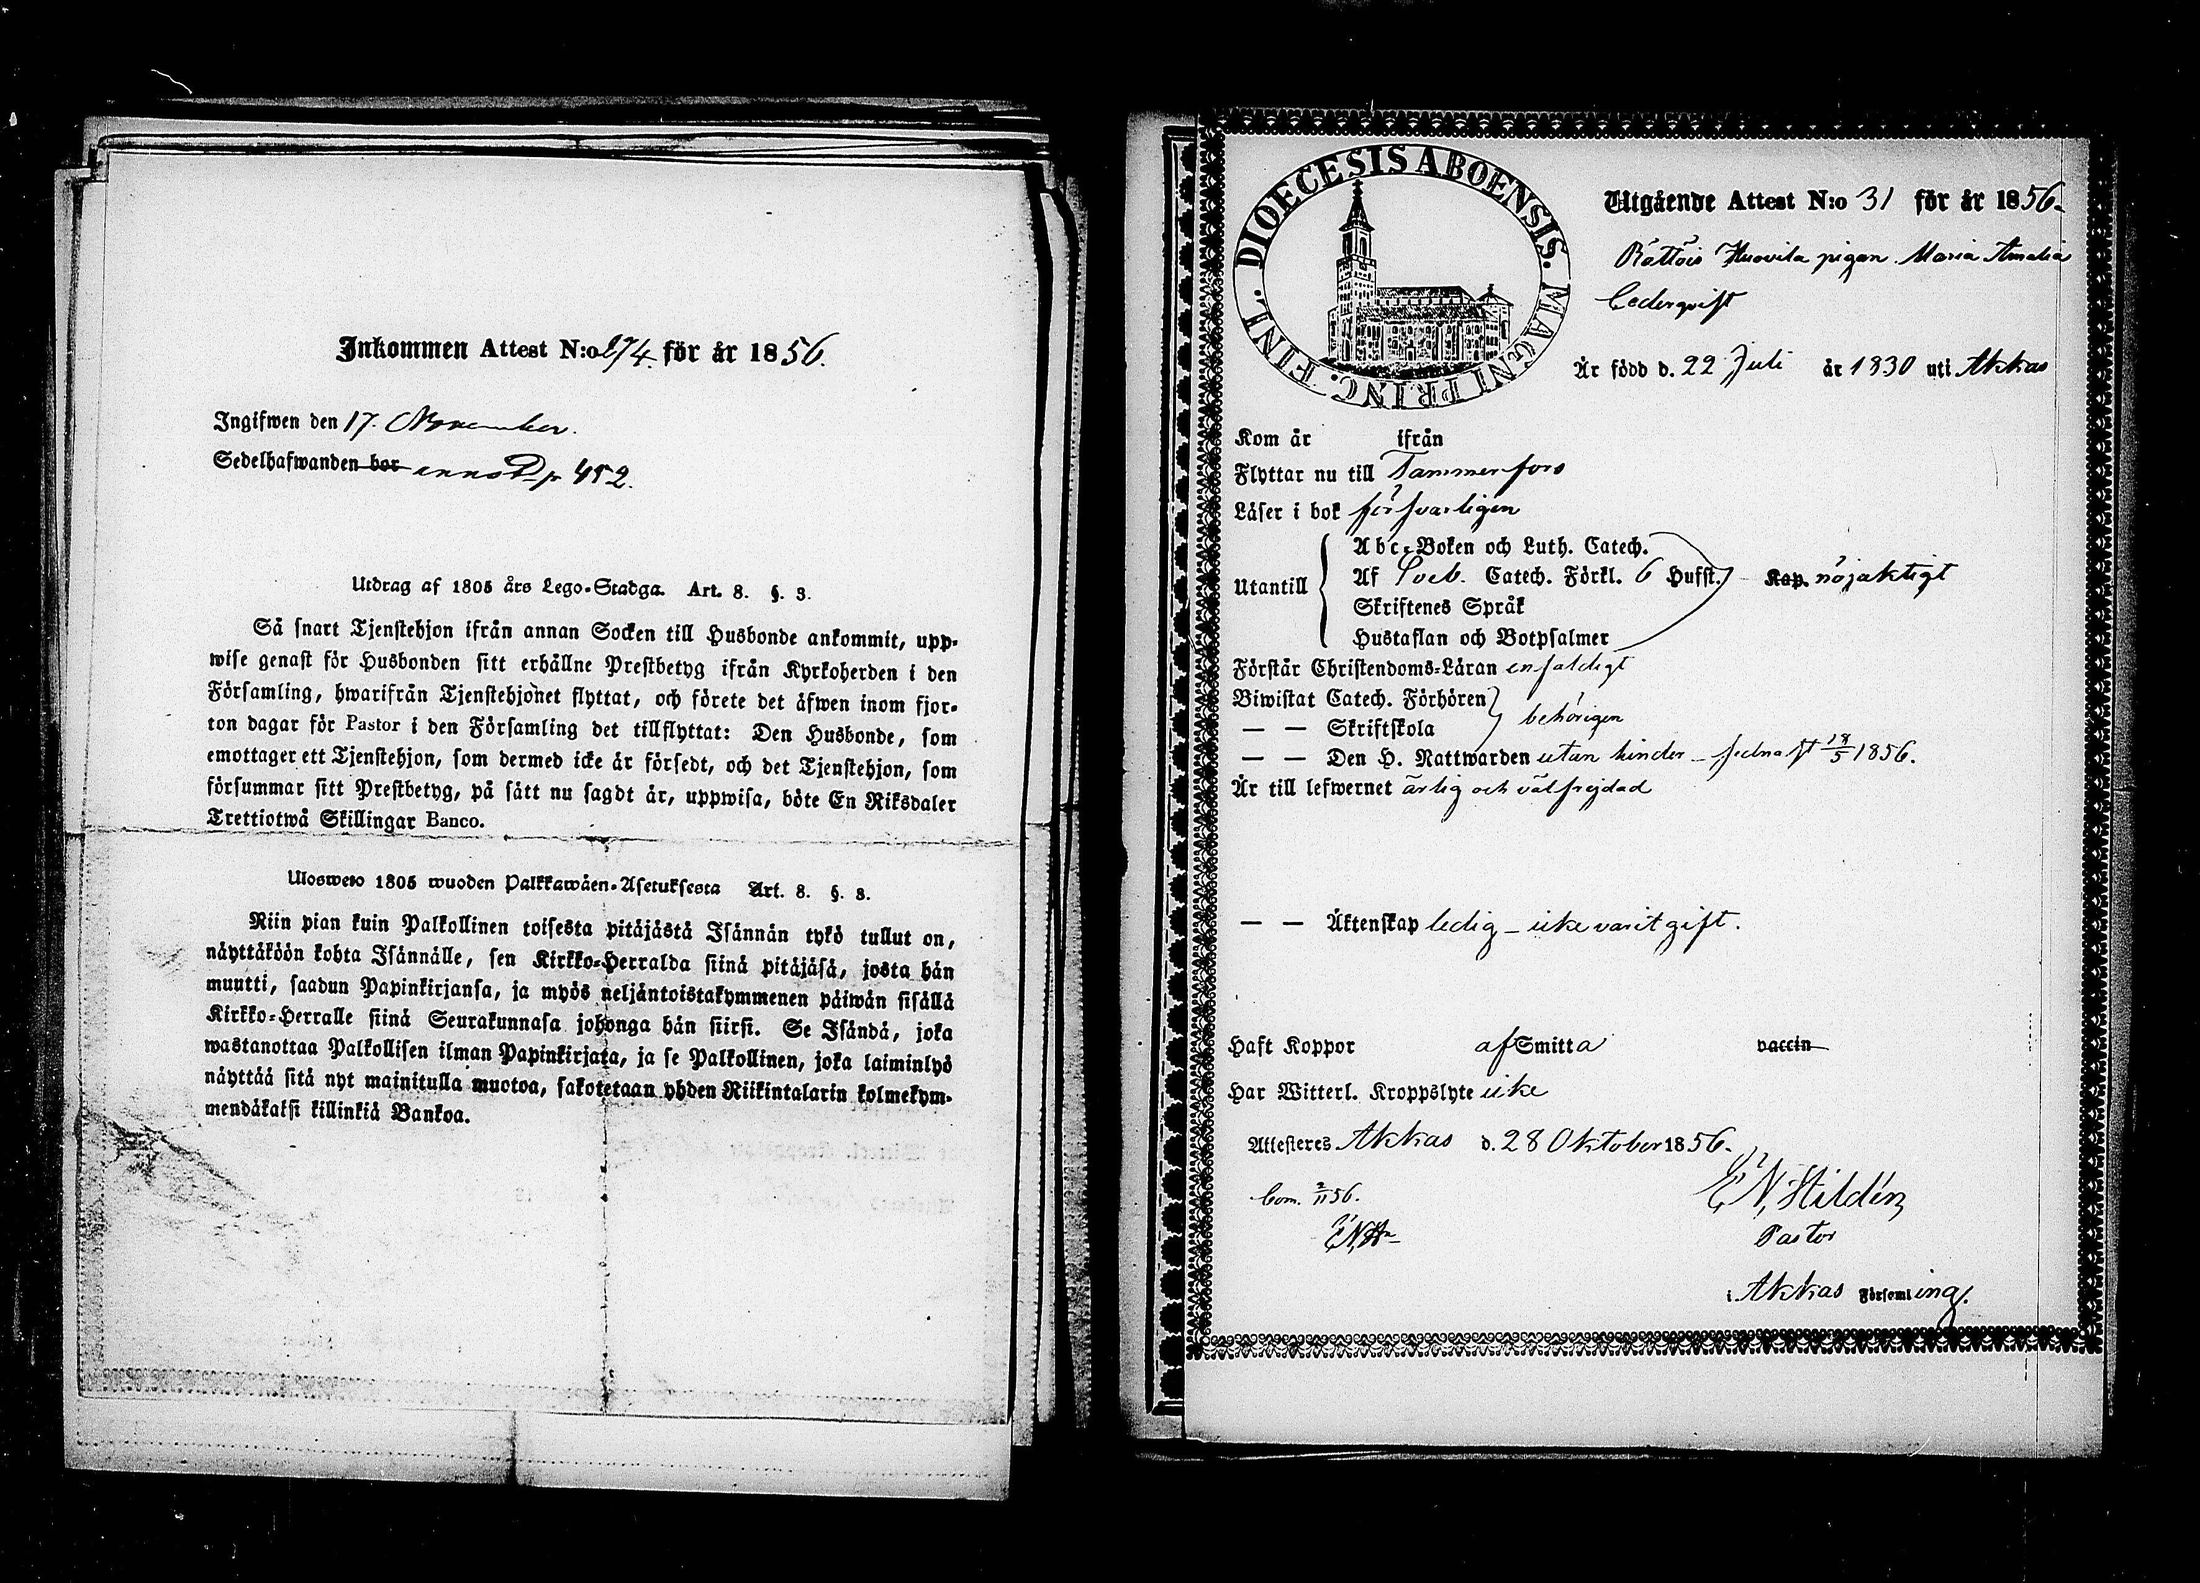 Inkommen Attest N:o 274. för år 1856.
Ingifwen den 17. November.
Sedelhafwanden bor p 452.
Utdrag af 1805 års Lego-Stadga. Art. 8. §. 3.
Så snart Tjenstehjon ifrån annan Socken till Husbonde ankommit, upp-
wise genast för Husbonden sitt erhållne Prestbetyg ifrån Kyrkoherden i den
Församling, hwarifrån Tjenstehjonet flyttat, och förete det äfwen inom fjor-
ton dagar för Pastor i den Församling det tillflyttat: Den Husbonde, som
emottager ett Tjenstehjon, som dermed icke är försedt, och det Tjenstehjon, som
försummar sitt Prestbetyg, på sätt nu sagdt är, uppwisa, böte En Riksdaler
Trettiotwå Skillingar Banco.
Ulosweto 1805 wuoden Palkkawäen-Asetuksesta Art. 8. §. 3.
Niin pian kuin Palkollinen toisesta pitäjästä Isännän tykö tullut on,
näyttäköön kohta Isännälle, sen Kirkko-Herralda siinä pitäjäsä, josta hän
muutti, saadun Papinkirjansa, ja myös neljäntoistakymmenen päiwän sisällä
Kirkko-Herralle siinä Seurakunnasa johonga hän siirsi. Se Isändä, joka
wastanottaa Palkollisen ilman Papinkirjata, ja se Palkollinen, joka laiminlyö
näyttää sitä nyt mainitulla muotoa, sakotetaan yhden Riikintalarin kolmekym-
mendäkaksi killinkiä Bankoa.
DIOECESIS ABOENSIS. MAGNI PRINC. FINL.
Utgående Attest N:o 31 för år 1856.
Rättöis Huovila pigan Maria Amalia
Cederqvist
Är född d. 22 Juli år 1830 uti Akkas
Kom år ifrån
Flyttar nu till Tammerfors
Läser i bok försvarligen
Utantill
Abc-Boken och Luth. Catech.
Af Sveb. Catech. Förkl. 6 Hufst. Kap. nöjaktigt
Skriftenes Språk
Hustaflan och Botpsalmer
Förstår Christendoms-Läran enfaldigt
Biwistat Catech. Förhören
— — Skriftskola behörigen
— — Den H. Nattwarden utan hinder – sednast 18/5 1856.
Är till lefwernet ärlig och välfrejdad
— — Äktenskap ledig – icke varit gift.
Haft Koppor af Smitta vaccin
Har Witterl. Kroppslyte icke
Attesteres Akkas d. 28 Oktober 1856.
Com. 2/11 56.
E N Hildén
E N Hn
Pastor
i Akkas Församling.